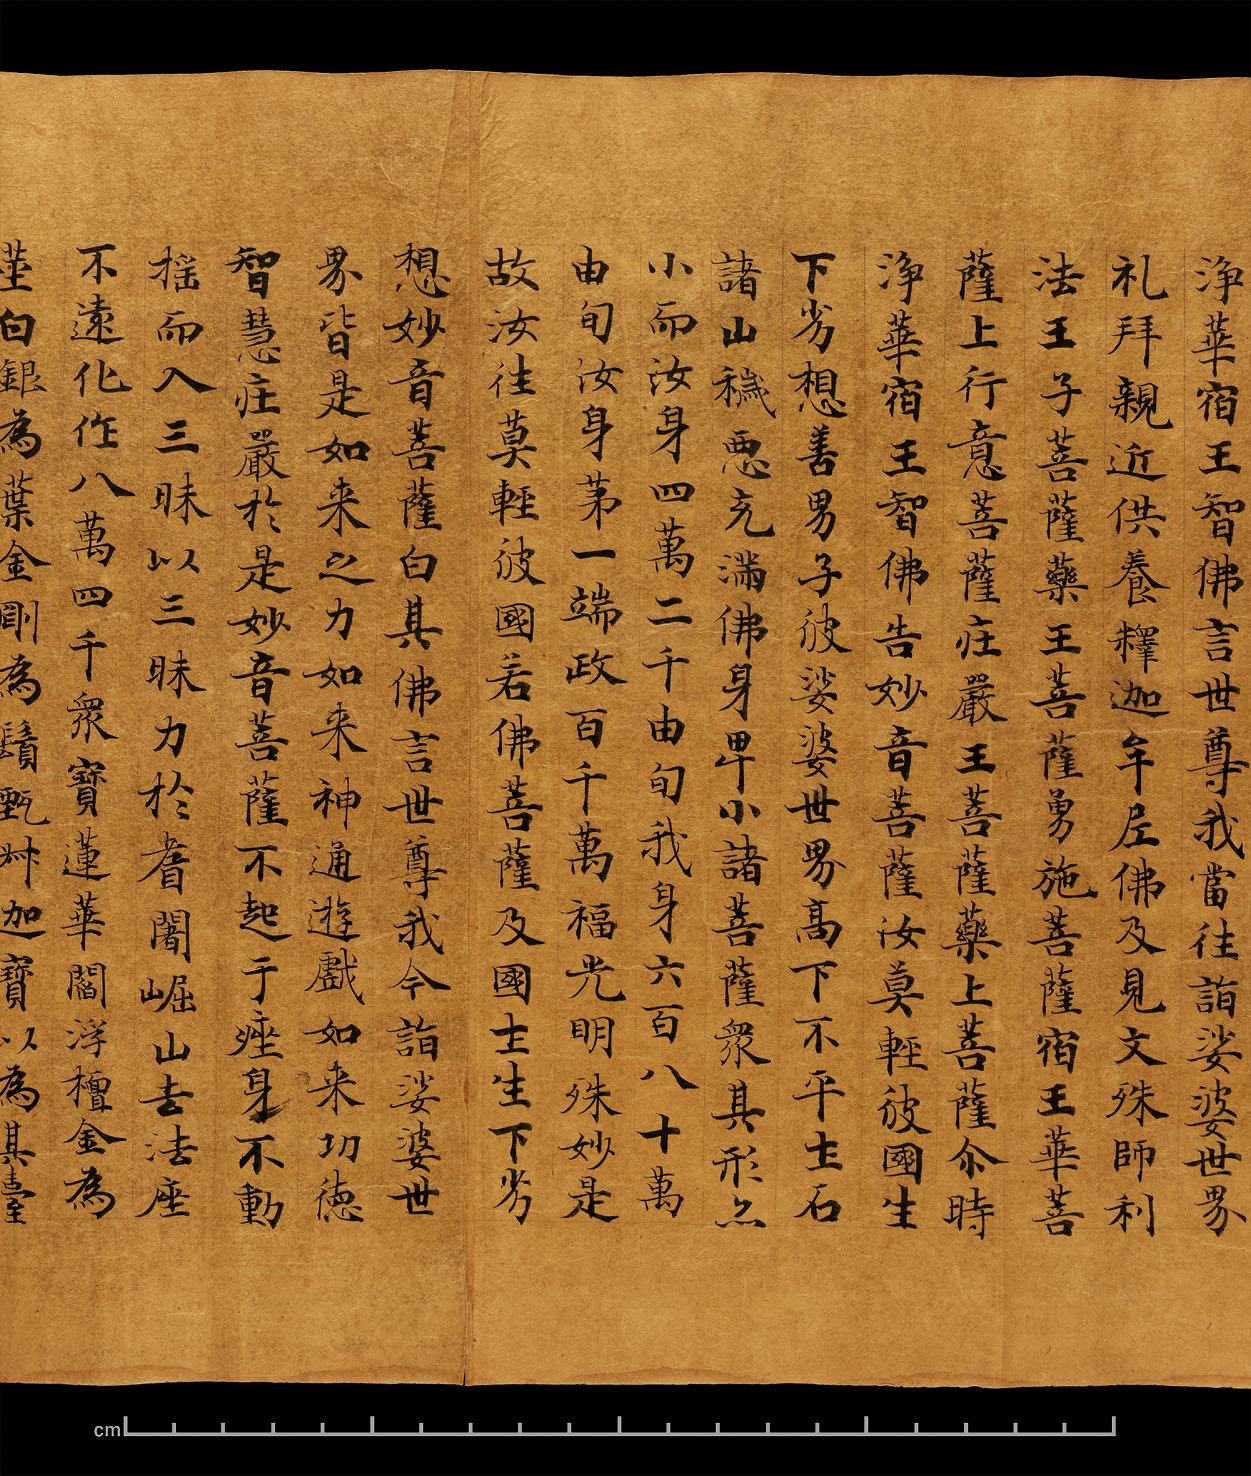 浄華宿王智佛言世尊我當往詣娑婆世界
礼拜親近供養釋迦牟尼佛及見文殊師利
法王子菩薩藥王菩薩勇施菩薩宿王華菩
薩上行意菩薩庄嚴王菩薩藥上菩薩尒時
浄華宿王智佛告妙音菩薩汝莫輕彼國生
下劣想善男子彼娑婆世界高下不平土石
諸山穢惡充滿佛身卑小諸菩薩衆其形亦
小而汝身四萬二千由旬我身六百八十萬
由旬汝身第一端政百千萬福光明殊妙是
故汝往莫輕彼國若佛菩薩及國土生下劣
想妙音菩薩白其佛言世尊我今詣娑婆世
界皆是如来之力如来神通遊戲如来功德
智慧庄嚴於是妙音菩薩不起于座身不動
摇而入三昧以三昧力於耆闍崛山去法座
不遠化作八萬四千衆寶蓮華閻浮檀金為
莖白銀為葉金剛為鬚甄叔迦寶以為其臺
cm